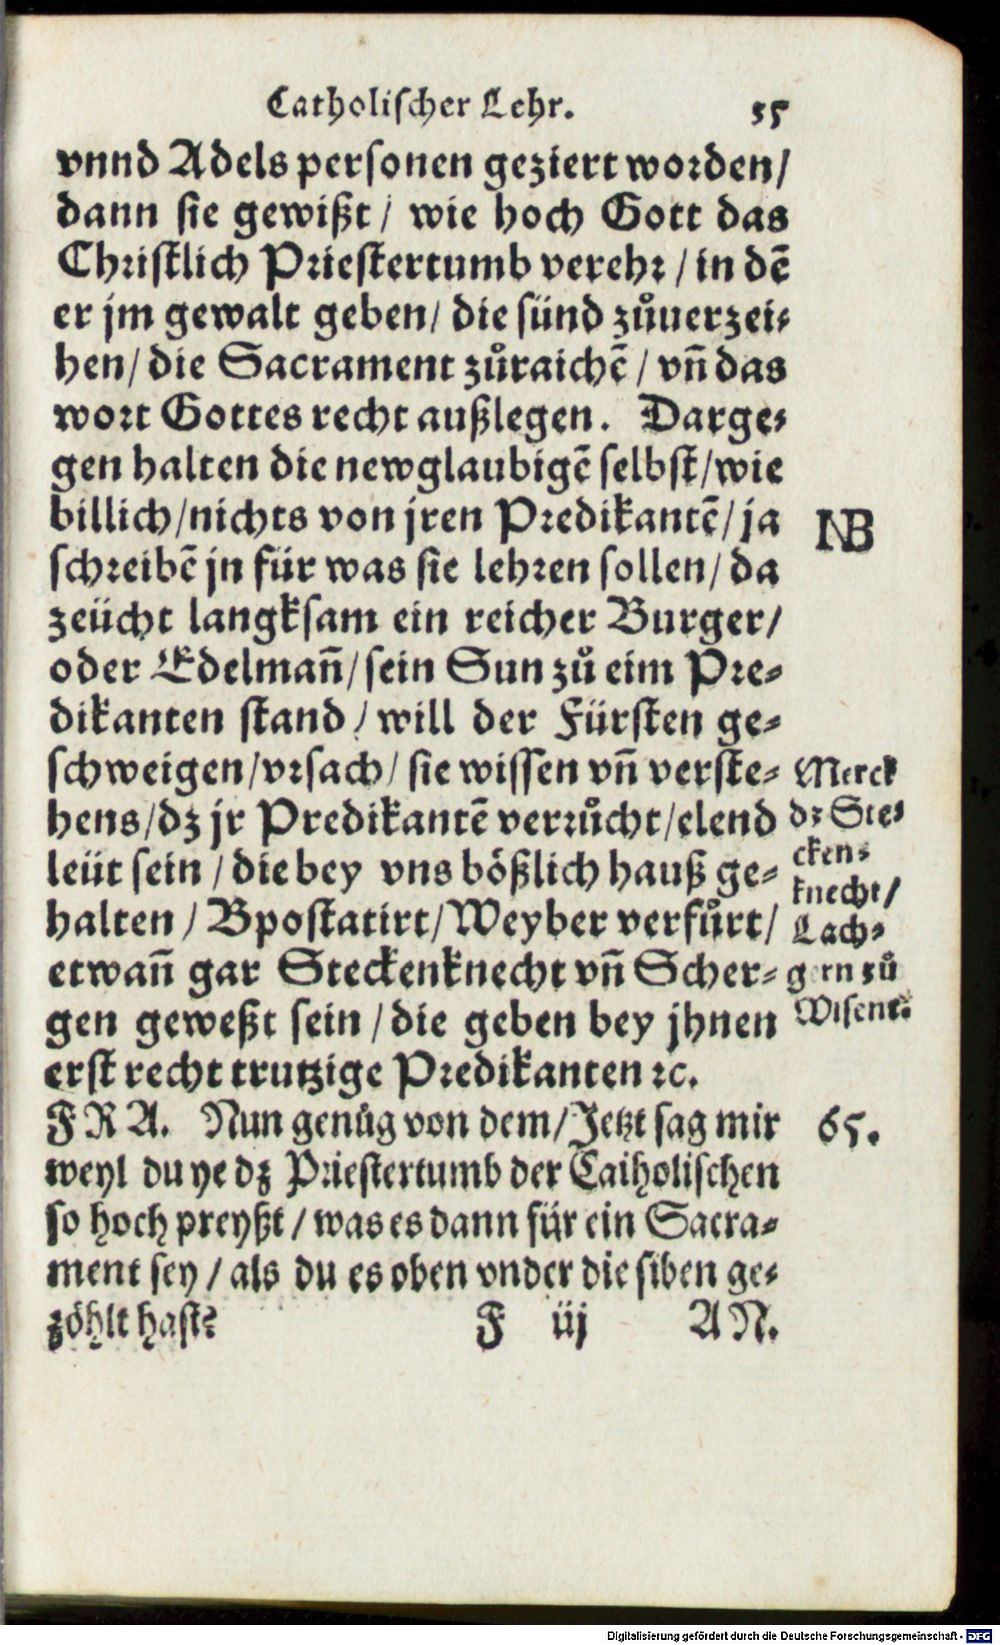 Catholischer Lehr. 55
vnnd Adels personen geziert worden/
dann sie gewißt/ wie hoch Gott das
Christlich Priestertumb verehr/in dẽ
er jm gewalt geben/ die sünd zůuerzei⸗
hen/ die Sacrament zůraichẽ/ vñ das
wort Gottes recht außlegen. Darge⸗
gen halten die newglaubigẽ selbst/wie
billich/nichts von jren Predikantẽ/ja
schreibẽ jn für was sie lehren sollen/da
zeücht langksam ein reicher Burger/
oder Edelmañ/sein Sun zů eim Pre⸗
dikanten stand/ will der Fürsten ge⸗
schweigen/vrsach/ sie wissen vñ verste⸗
hens/dz jr Predikantẽ verrůcht/elend
leüt sein/die bey vns bößlich hauß ge⸗
halten/ Bpostatirt/Weyber verfůrt/
etwañ gar Steckenknecht vñ Scher⸗
gen geweßt sein/die geben bey jhnen
erst recht trutzige Predikanten ꝛc.
FRA. Nun genůg von dem/Jetzt sag mir
weyl du ye dz Priestertumb der Caiholischen
so hoch preyßt/was es dann für ein Sacra⸗
ment sey/als du es oben vnder die siben ge⸗
zöhlt hast?
F üj AN.
NB
Merck
dz Ste⸗
cken⸗
knecht/
Lach⸗
gern zů
Wisent.
65.
Digitalisierung gefördert durch die Deutsche Forschungsgemeinschaft - DFG